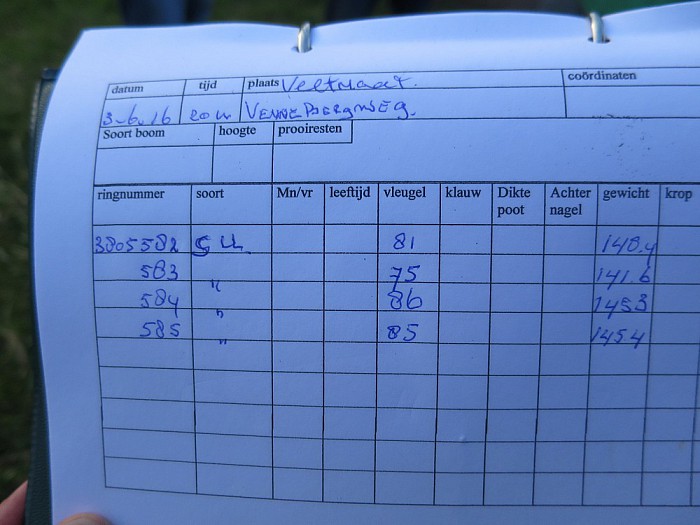 datum tijd plaats Veltmaat. coördinaten
3-6-16 20 u VENNEBERGWEG.
Soort boom hoogte prooiresten
ringnummer soort Mn/vr leeftijd vleugel klauw Dikte poot Achter nagel gewicht krop
3805582 SU 81 140.4
583 " 75 141.6
584 " 86 1453
585 " 85 145.4